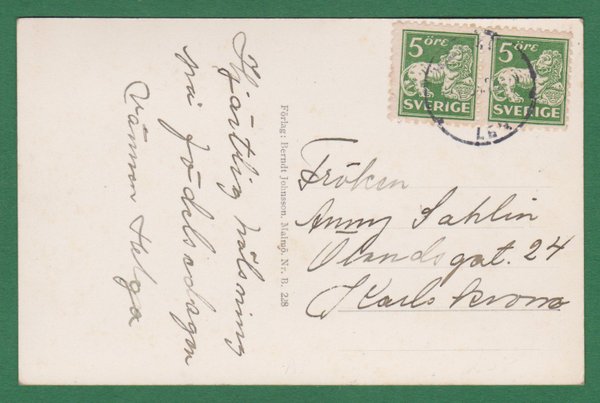 Hjärtlig hälsning
på födelsedagen
Vännen Helga
Förlag: Berndt Johnsson, Malmö. Nr. B. 228
5 ÖRE
SVERIGE
5 ÖRE
SVERIGE
Fröken
Anny Sahlin
Ölandsgat. 24
Karlskrona